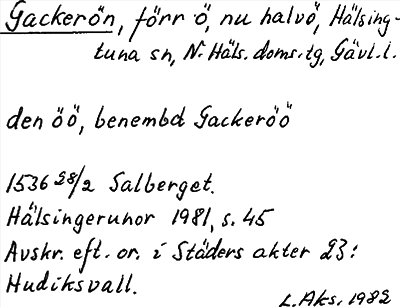 Gackerön, förr ö, nu halvö, Hälsing-
tuna sn, N. Häls. doms. tg, Gävl. l.
den öö, benembd Gackeröö
1536 28/2 Salberget.
Hälsingerunor 1981, s. 45
Avskr. eft. or. i Städers akter 23:
Hudiksvall.
L. Aks. 1982